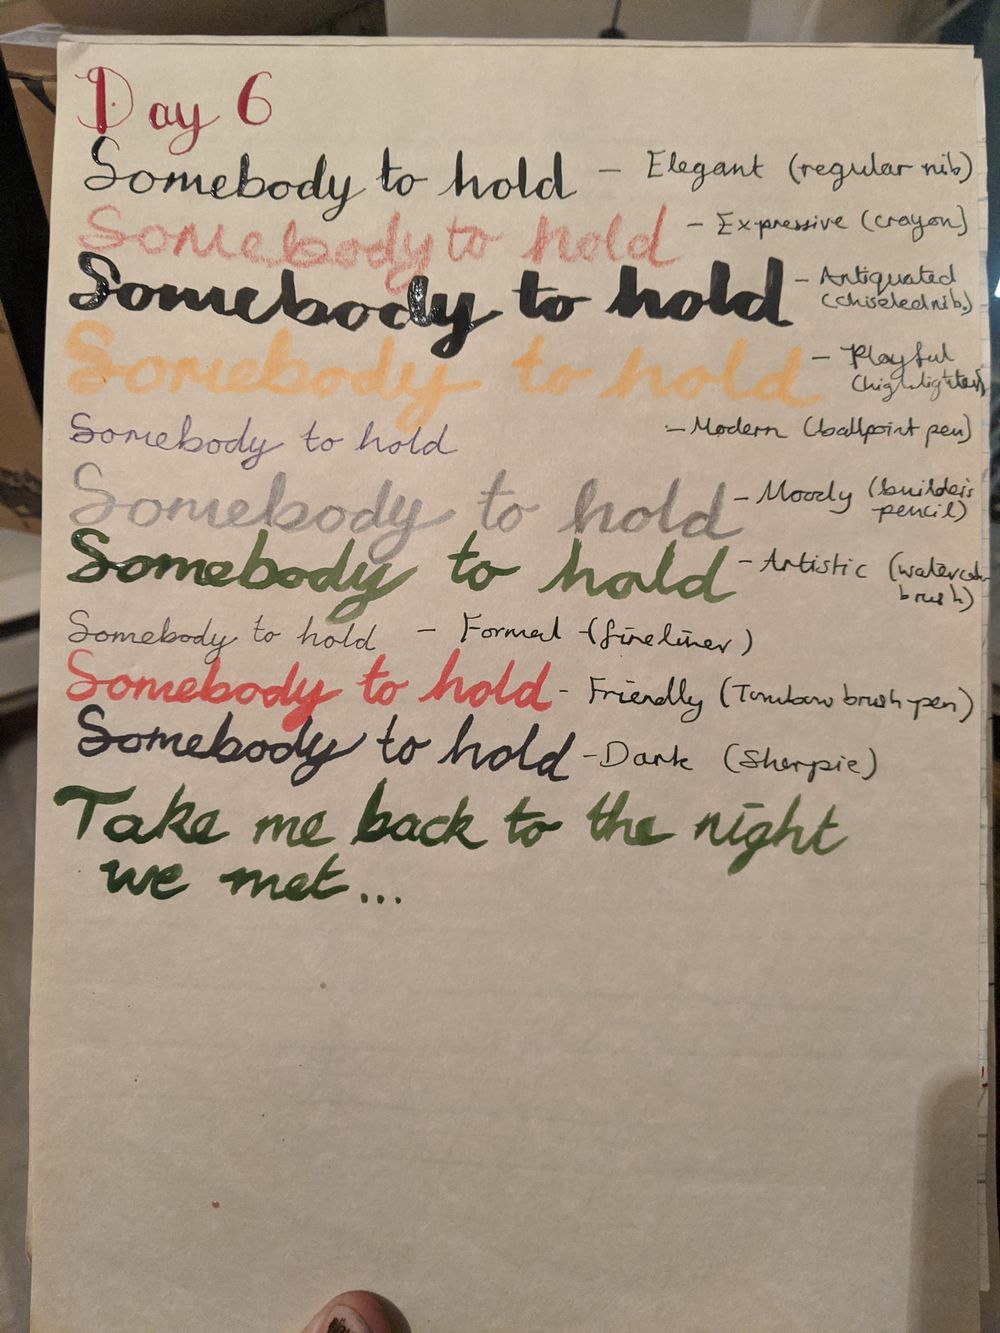 Day 6
Somebody to hold - Elegant (regular nib)
Somebody to hold - Expressive (crayon)
Somebody to hold - Antiquated
(chiseled nib)
Somebody to hold - Playful
(highlighter)
Somebody to hold - Modern (ballpoint pen)
Somebody to hold - Moody (builder's
pencil)
Somebody to hold - Artistic (watercolor
brush)
Somebody to hold - Formal - (fineliner)
Somebody to hold - Friendly (Tombow brush-pen)
Somebody to hold - Dark (Sharpie)
Take me back to the night
we met...